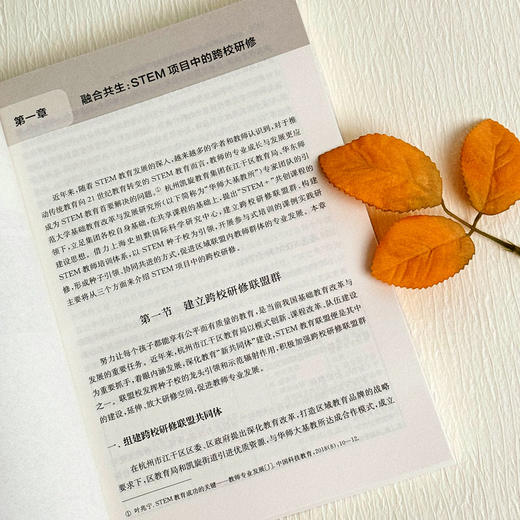 第一章
融合共生：STEM 项目中的跨校研修
近年来，随着 STEM 教育发展的深入，越来越多的学者和教师认识到，对于推
动传统教育向 21 世纪教育转变的 STEM 教育而言，教师的专业成长与发展更应
成为 STEM 教育首要解决的问题。① 杭州凯旋教育集团在江干区教育局、华东师
范大学基础教育改革与发展研究所（以下简称为“华师大基教所”）专家团队的引
领下，立足集团各校自身基础，在共享课程的基础上，提出“STEM+”共创课程的
建设思想。借力上海史坦默国际科学研究中心，建立跨校研修联盟群，构建
STEM 教师培训体系，以 STEM 种子校为引领，开展参与式培训的课例实践研
修，形成种子引领、协同共进的方式，促进区域联盟内教师群体的专业发展。本章
主要将从三个方面来介绍 STEM 项目中的跨校研修。
第一节 建立跨校研修联盟群
努力让每个孩子都能享有公平而有质量的教育，是当前我国基础教育改革与
发展的重要任务。近年来，杭州市江干区教育局以模式创新、课程改革、队伍建设
为重要抓手，着眼内涵发展，深化教育“新共同体”建设，STEM 教育联盟便是其中
之一。联盟校发挥种子校的龙头引领和示范辐射作用，积极加强跨校研修联盟群
的建设，延伸、放大研修空间，促进教师专业发展。
一、组建跨校研修联盟共同体
在杭州市江干区区委、区政府提出深化教育改革，打造区域教育品牌的战略
要求下，区教育局和凯旋街道引进优质资源，与华师大基教所达成合作模式，成立
① 叶兆宁. STEM 教育成功的关键——教师专业发展[J]. 中国科技教育，2018(8)，10—12.